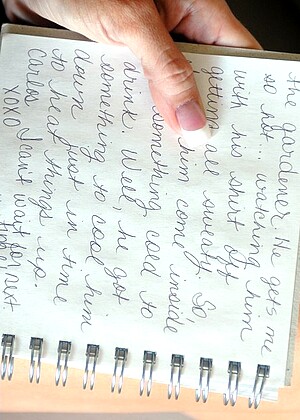 the gardener. He gets me
so hot... watching him
with his shirt off
getting all sweaty. So
him come inside
something cold to
drink. Well, he got
something to cool him
down just in time
to heat things up.
Carlos
XOXO I can't wait for next